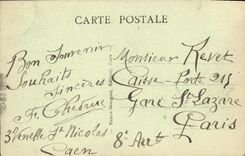 CARTE POSTALE
Bon Souvenir
Souhaits
Sincères
F.
3 Venelle St Nicolas
Caen
Monsieur Revet
Caisse - Porte 215
Gare St Lazare
8e Arrt
Paris